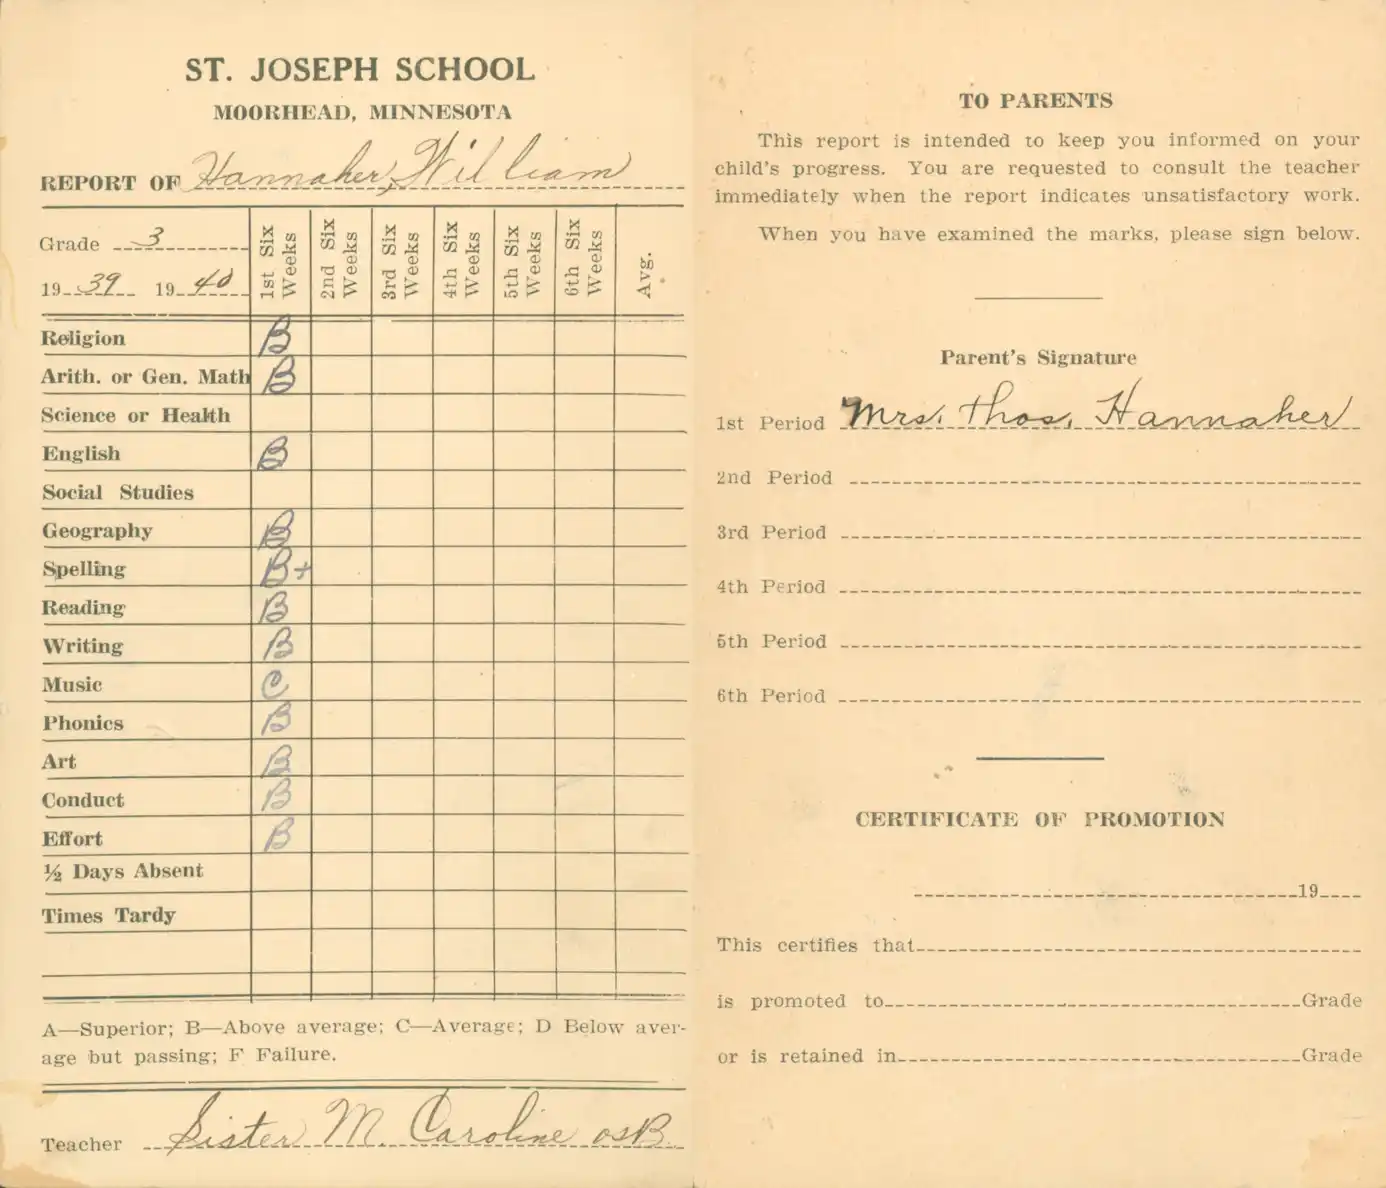 ST. JOSEPH SCHOOL
MOORHEAD, MINNESOTA
REPORT OF Hannaher, William
Grade 3
19 39 19 40
1st Six Weeks 2nd Six Weeks 3rd Six Weeks 4th Six Weeks 5th Six Weeks 6th Six Weeks Avg.
Religion B
Arith. or Gen. Math B
Science or Health
English B
Social Studies
Geography B
Spelling B+
Reading B
Writing B
Music C
Phonics B
Art B
Conduct B
Effort B
½ Days Absent
Times Tardy
A—Superior; B—Above average; C—Average; D Below aver-
age but passing; F Failure.
Teacher Sister M. Caroline OSB
TO PARENTS
This report is intended to keep you informed on your
child's progress. You are requested to consult the teacher
immediately when the report indicates unsatisfactory work.
When you have examined the marks, please sign below.
Parent's Signature
1st Period Mrs. Thos. Hannaher
2nd Period
3rd Period
4th Period
5th Period
6th Period
CERTIFICATE OF PROMOTION
19
This certifies that
is promoted to Grade
or is retained in Grade